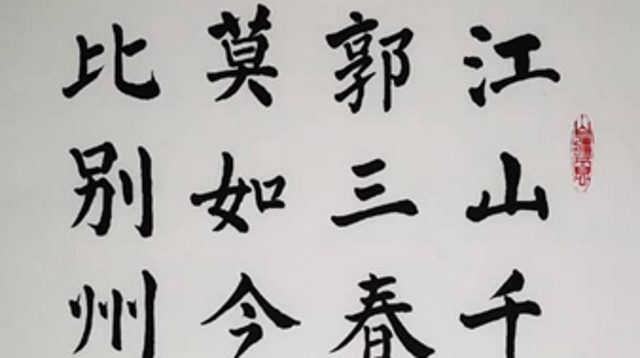 江山千
郭三春
莫如今
比别州